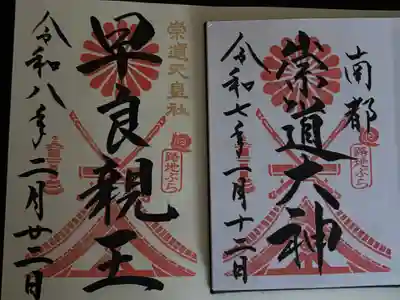 南都
崇道大神
令和七年一月十二日
路地ぶら
崇道天皇社
早良親王
令和八年二月廿二日
路地ぶら